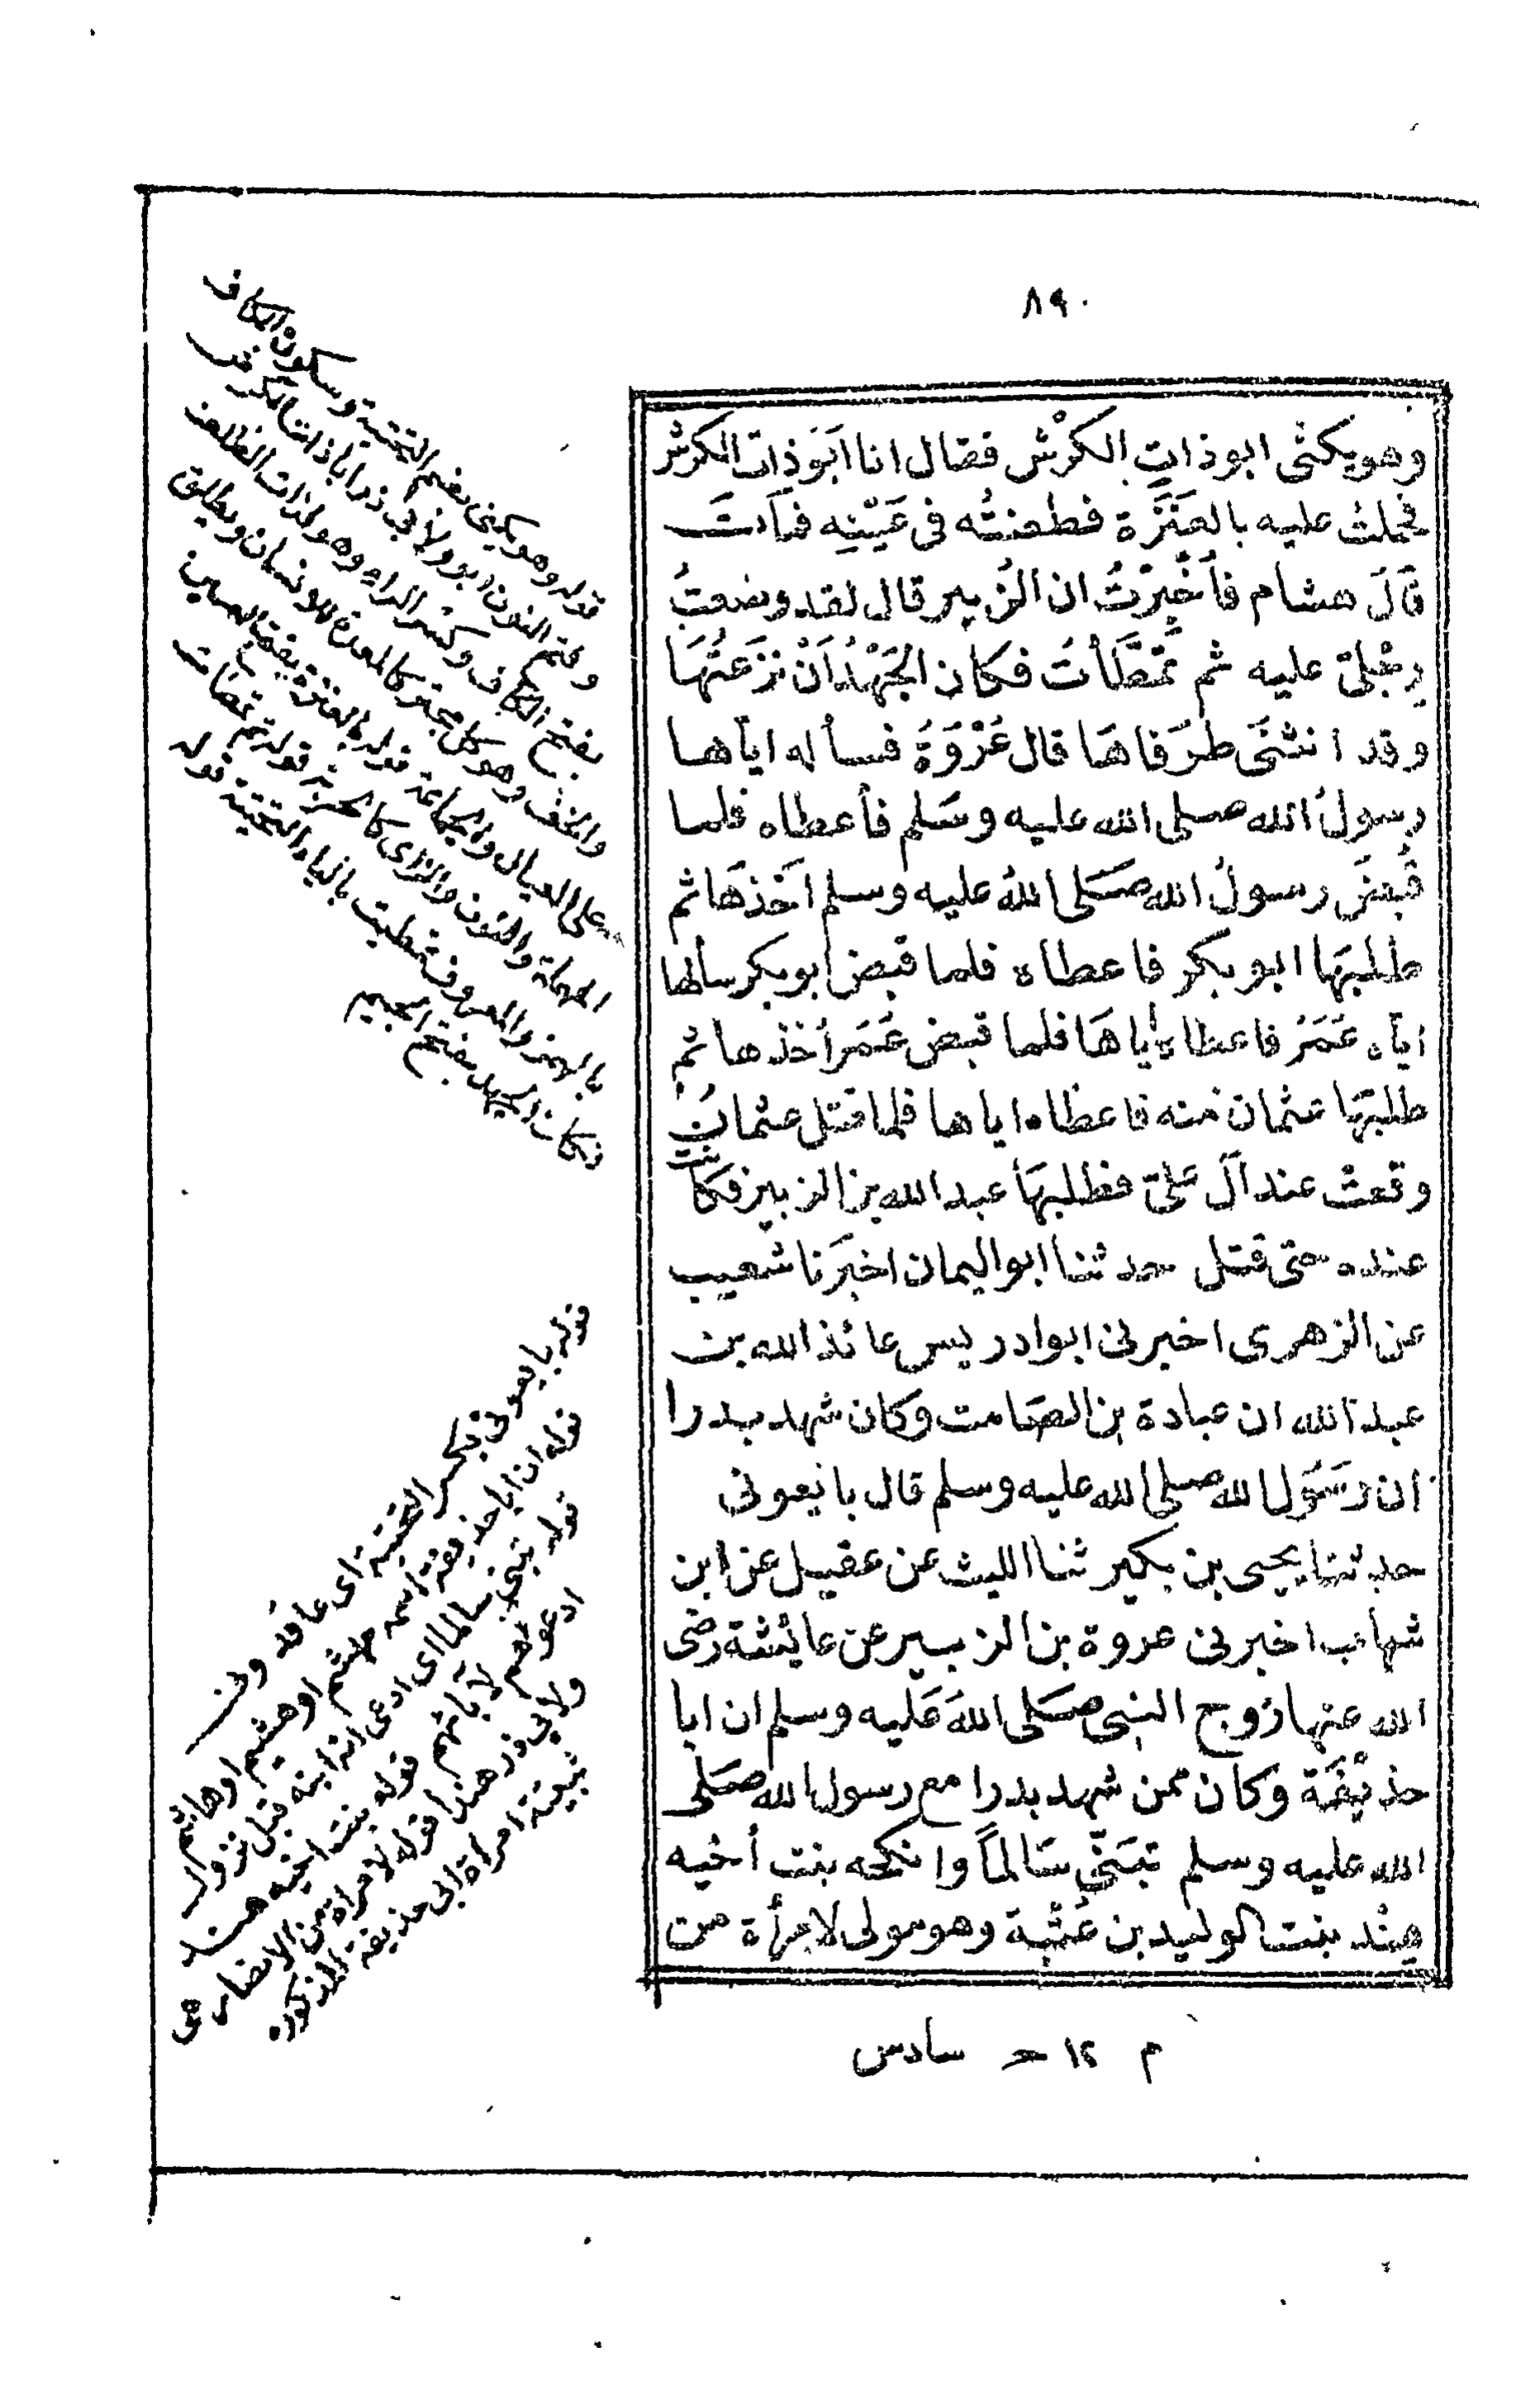 ٨٩٠
وهو يكنى ابو ذات الكرش فقال انا ابو ذات الكرش
فحملت عليه بالعنزة فطعنته فى عينه فمات
قال هشام فأخبرت ان الزبير قال لقد وضعت
رجلى عليه ثم تمطأت فكان الجهد أن نزعتها
وقد انثنى طرفاها قال عروة فسأله اياها
رسول الله صلى الله عليه وسلم فأعطاه فلما
قبض رسول الله صلى الله عليه وسلم اخذها ثم
طلبها ابو بكر فاعطاه فلما قبض ابو بكر سألها
اياه عمر فاعطاه اياها فلما قبض عمر أخذها ثم
طلبها عثمان منه فاعطاه اياها فلما قتل عثمان
وقعت عند آل على فطلبها عبد الله بن الزبير فكانت
عنده حتى قتل حدثنا ابو اليمان اخبرنا شعيب
عن الزهرى اخبرنى ابو ادريس عائذ الله بن
عبد الله ان عبادة بن الصامت وكان شهد بدرا
ان رسول الله صلى الله عليه وسلم قال بايعونى
حدثنا يحيى بن بكير ثنا الليث عن عقيل عن ابن
شهاب اخبرنى عروة بن الزبير عن عايشة رضى
الله عنها زوج النبى صلى الله عليه وسلم ان ابا
حذيفة وكان ممن شهد بدرا مع رسول الله صلى
الله عليه وسلم تبنى سالما وانكحه بنت أخيه
هند بنت الوليد بن عتبة وهو مولى لامرأة من
م ١٢ حـ سادس
قوله وهو يكنى بضم التحتية وسكون الكاف
وفتح النون ابو ولأبى ذر أبا ذات الكرش
بفتح الكاف وكسر الراء وهو لذات الظلف
والخف وهو كل مجتر كالمعدة للانسان ويطلق
على العيال والجماعة قوله بالعنزة بفتح العين
المهملة والنون والزاى كالحربة قوله تمطأت
بالهمز والمعروف تمطيت بالياء التحتية قوله
فكان الجهد بفتح الجيم
قوله بايعونى بكسر التحتية اى عاقدونى
قوله ان ابا حذيفة اسمه مهشم او هشيم او هاشم
قوله تبنى سالما اى ادعى انه ابنه قبل نزول
ادعوهم لآبائهم قوله بنت اخيه هند
ولابى ذر هندا قوله لامرأة من الانصار هى
ثبيتة امرأة ابى حذيفة المذكورة